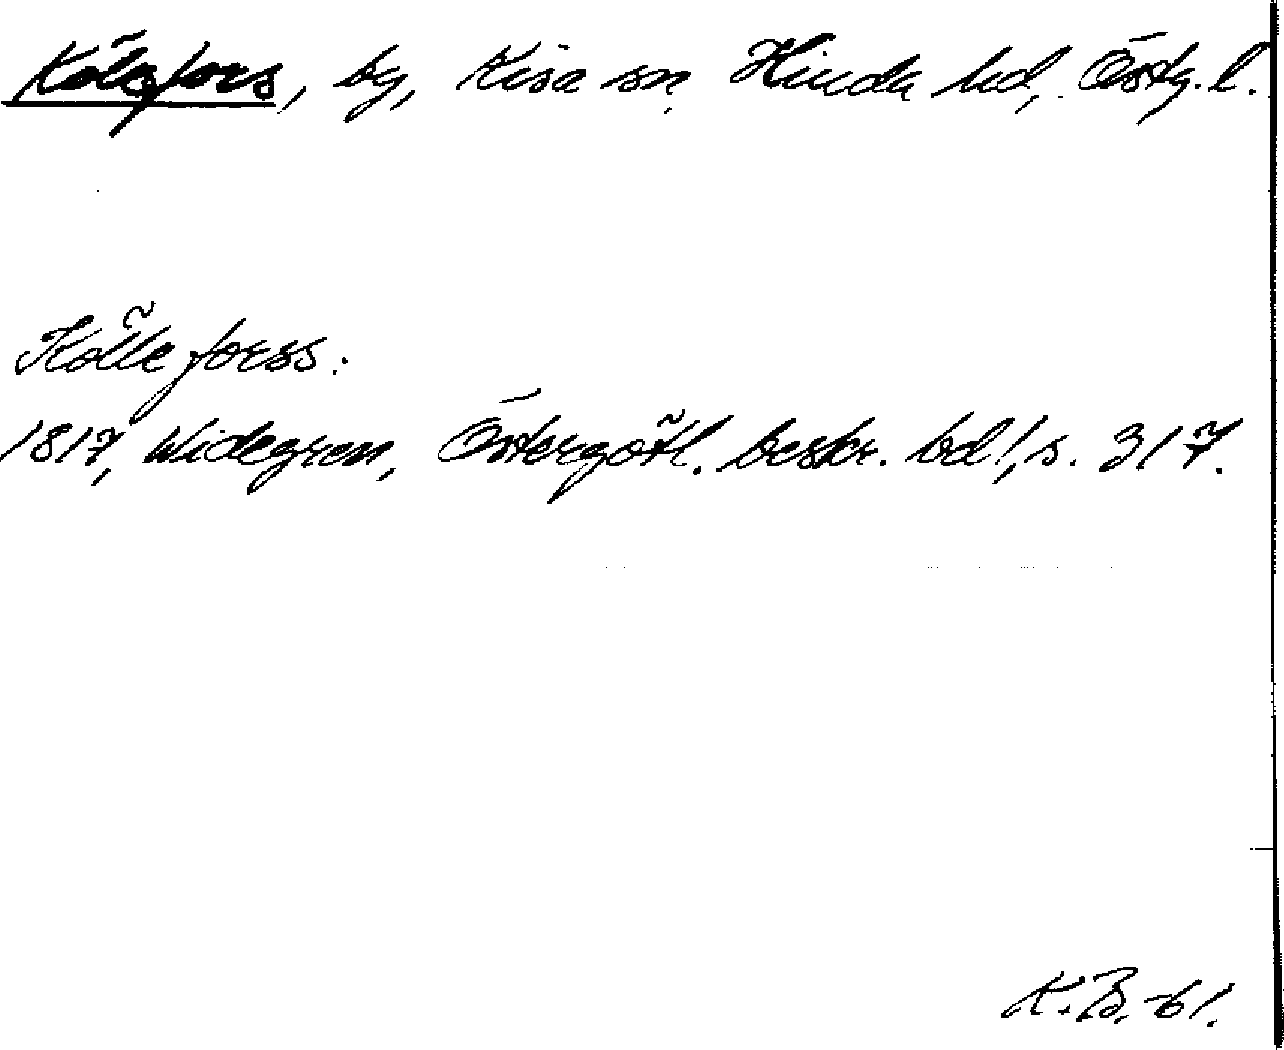 Kölefors, by, Kisa sn, Kinda hd, Östg. l.
Kölleforss:
1817, Widegren, Östergötl. beskr. bd 1, s. 317.
K. B. -61.